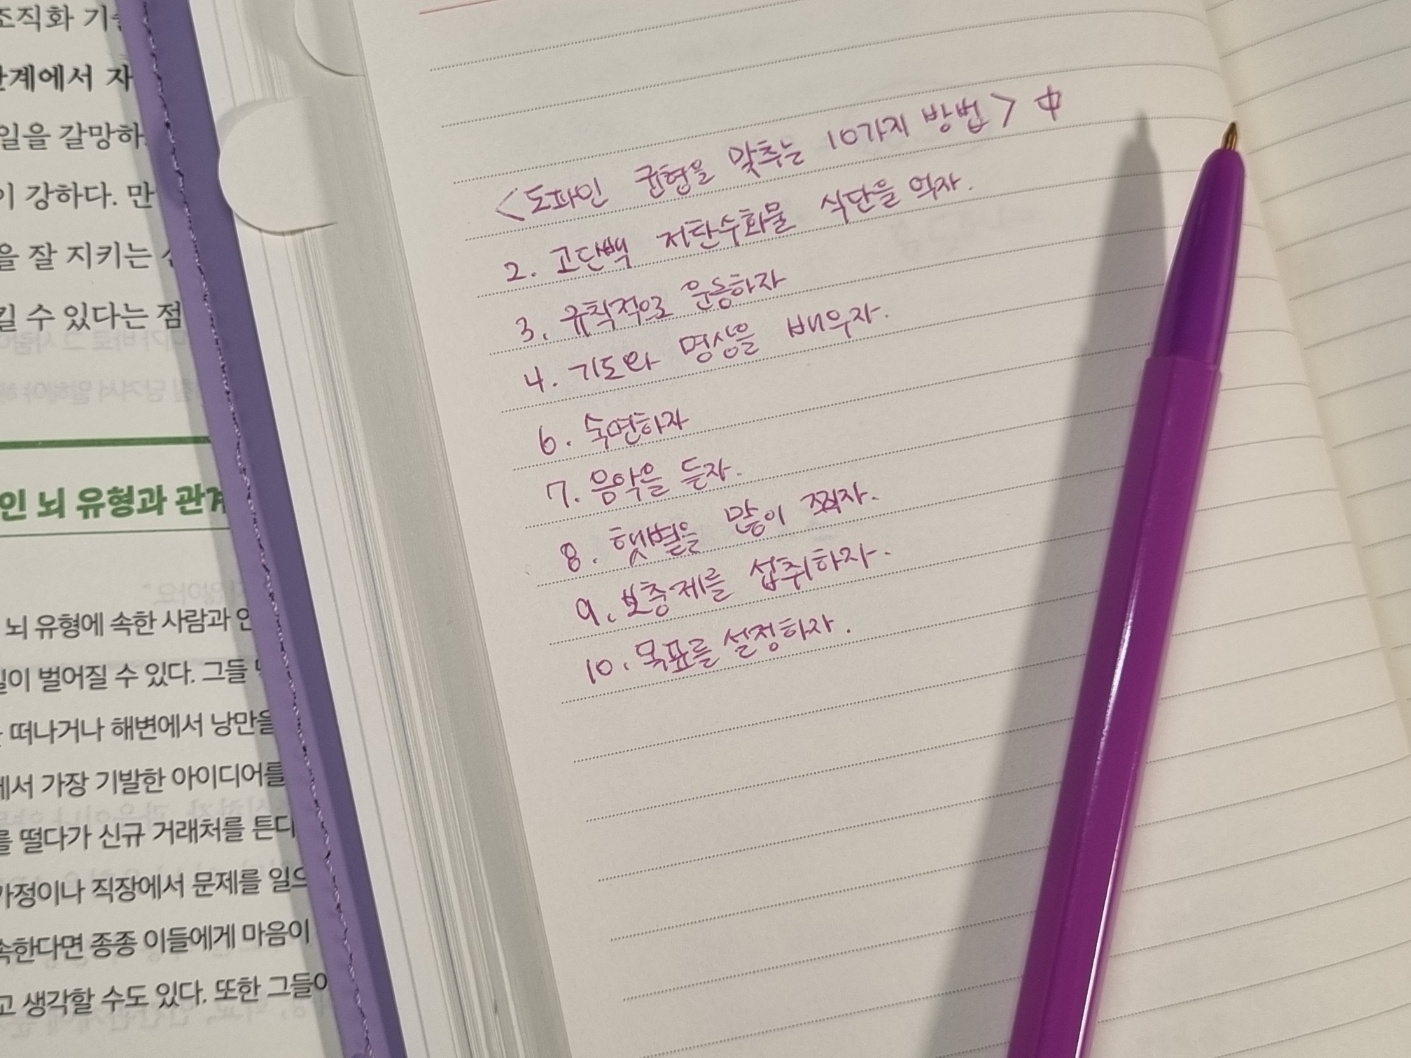 조직화 기
관계에서 자
일을 갈망하
이 강하다. 만
을 잘 지키는
길 수 있다는 점
인 뇌 유형과 관계
뇌 유형에 속한 사람과
일이 벌어질 수 있다. 그들
떠나거나 해변에서 낭만을
에서 가장 기발한 아이디어를
를 떨다가 신규 거래처를 튼다
가정이나 직장에서 문제를 일으
속한다면 종종 이들에게 마음이
고 생각할 수도 있다. 또한 그들이
<도파인 균형을 맞추는 10가지 방법> 中
2. 고단백 저탄수화물 식단을 먹자.
3. 규칙적으로 운동하자
4. 기도와 명상을 배우자.
6. 숙면하자
7. 음악을 듣자.
8. 햇볕을 많이 쬐자.
9. 보충제를 섭취하자.
10. 목표를 설정하자.